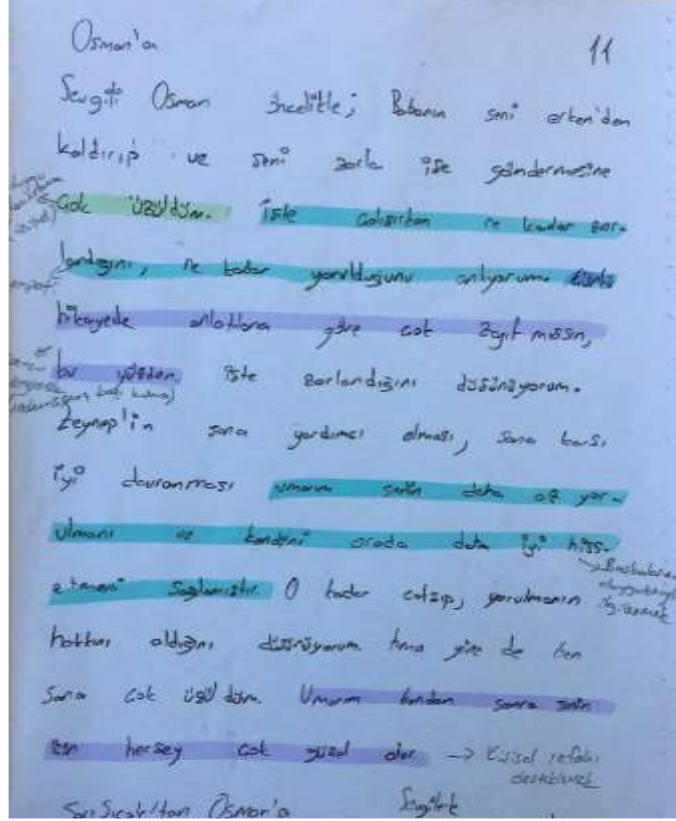 Osman'a
11
Sevgili Osman öncelikle; Babanın seni erken'den
kaldırıp ve seni zorla işe göndermesine
Çok üzüldüm. İşte çalışırken ne kadar zor-
landığını, ne kadar yorulduğunu anlıyorum.
hikayede anlatılana göre çok zayıf mışsın,
bu yüzden işte zorlandığını düşünüyorum.
Zeynep'in sana yardımcı olması, sana karşı
iyi davranması umarım senin daha az yor-
ulmanı ve kendini orada daha iyi hiss-
etmeni sağlamıştır. O kadar çalışıp, yorulmanın
hakkını aldığını düşünüyorum. Ama yine de ben
Sana çok üzüldüm. Umarım bundan sonra senin
için herşey çok güzel olur → Kişisel refahı
desteklemek
Sarı Sıcak'tan Osman'a